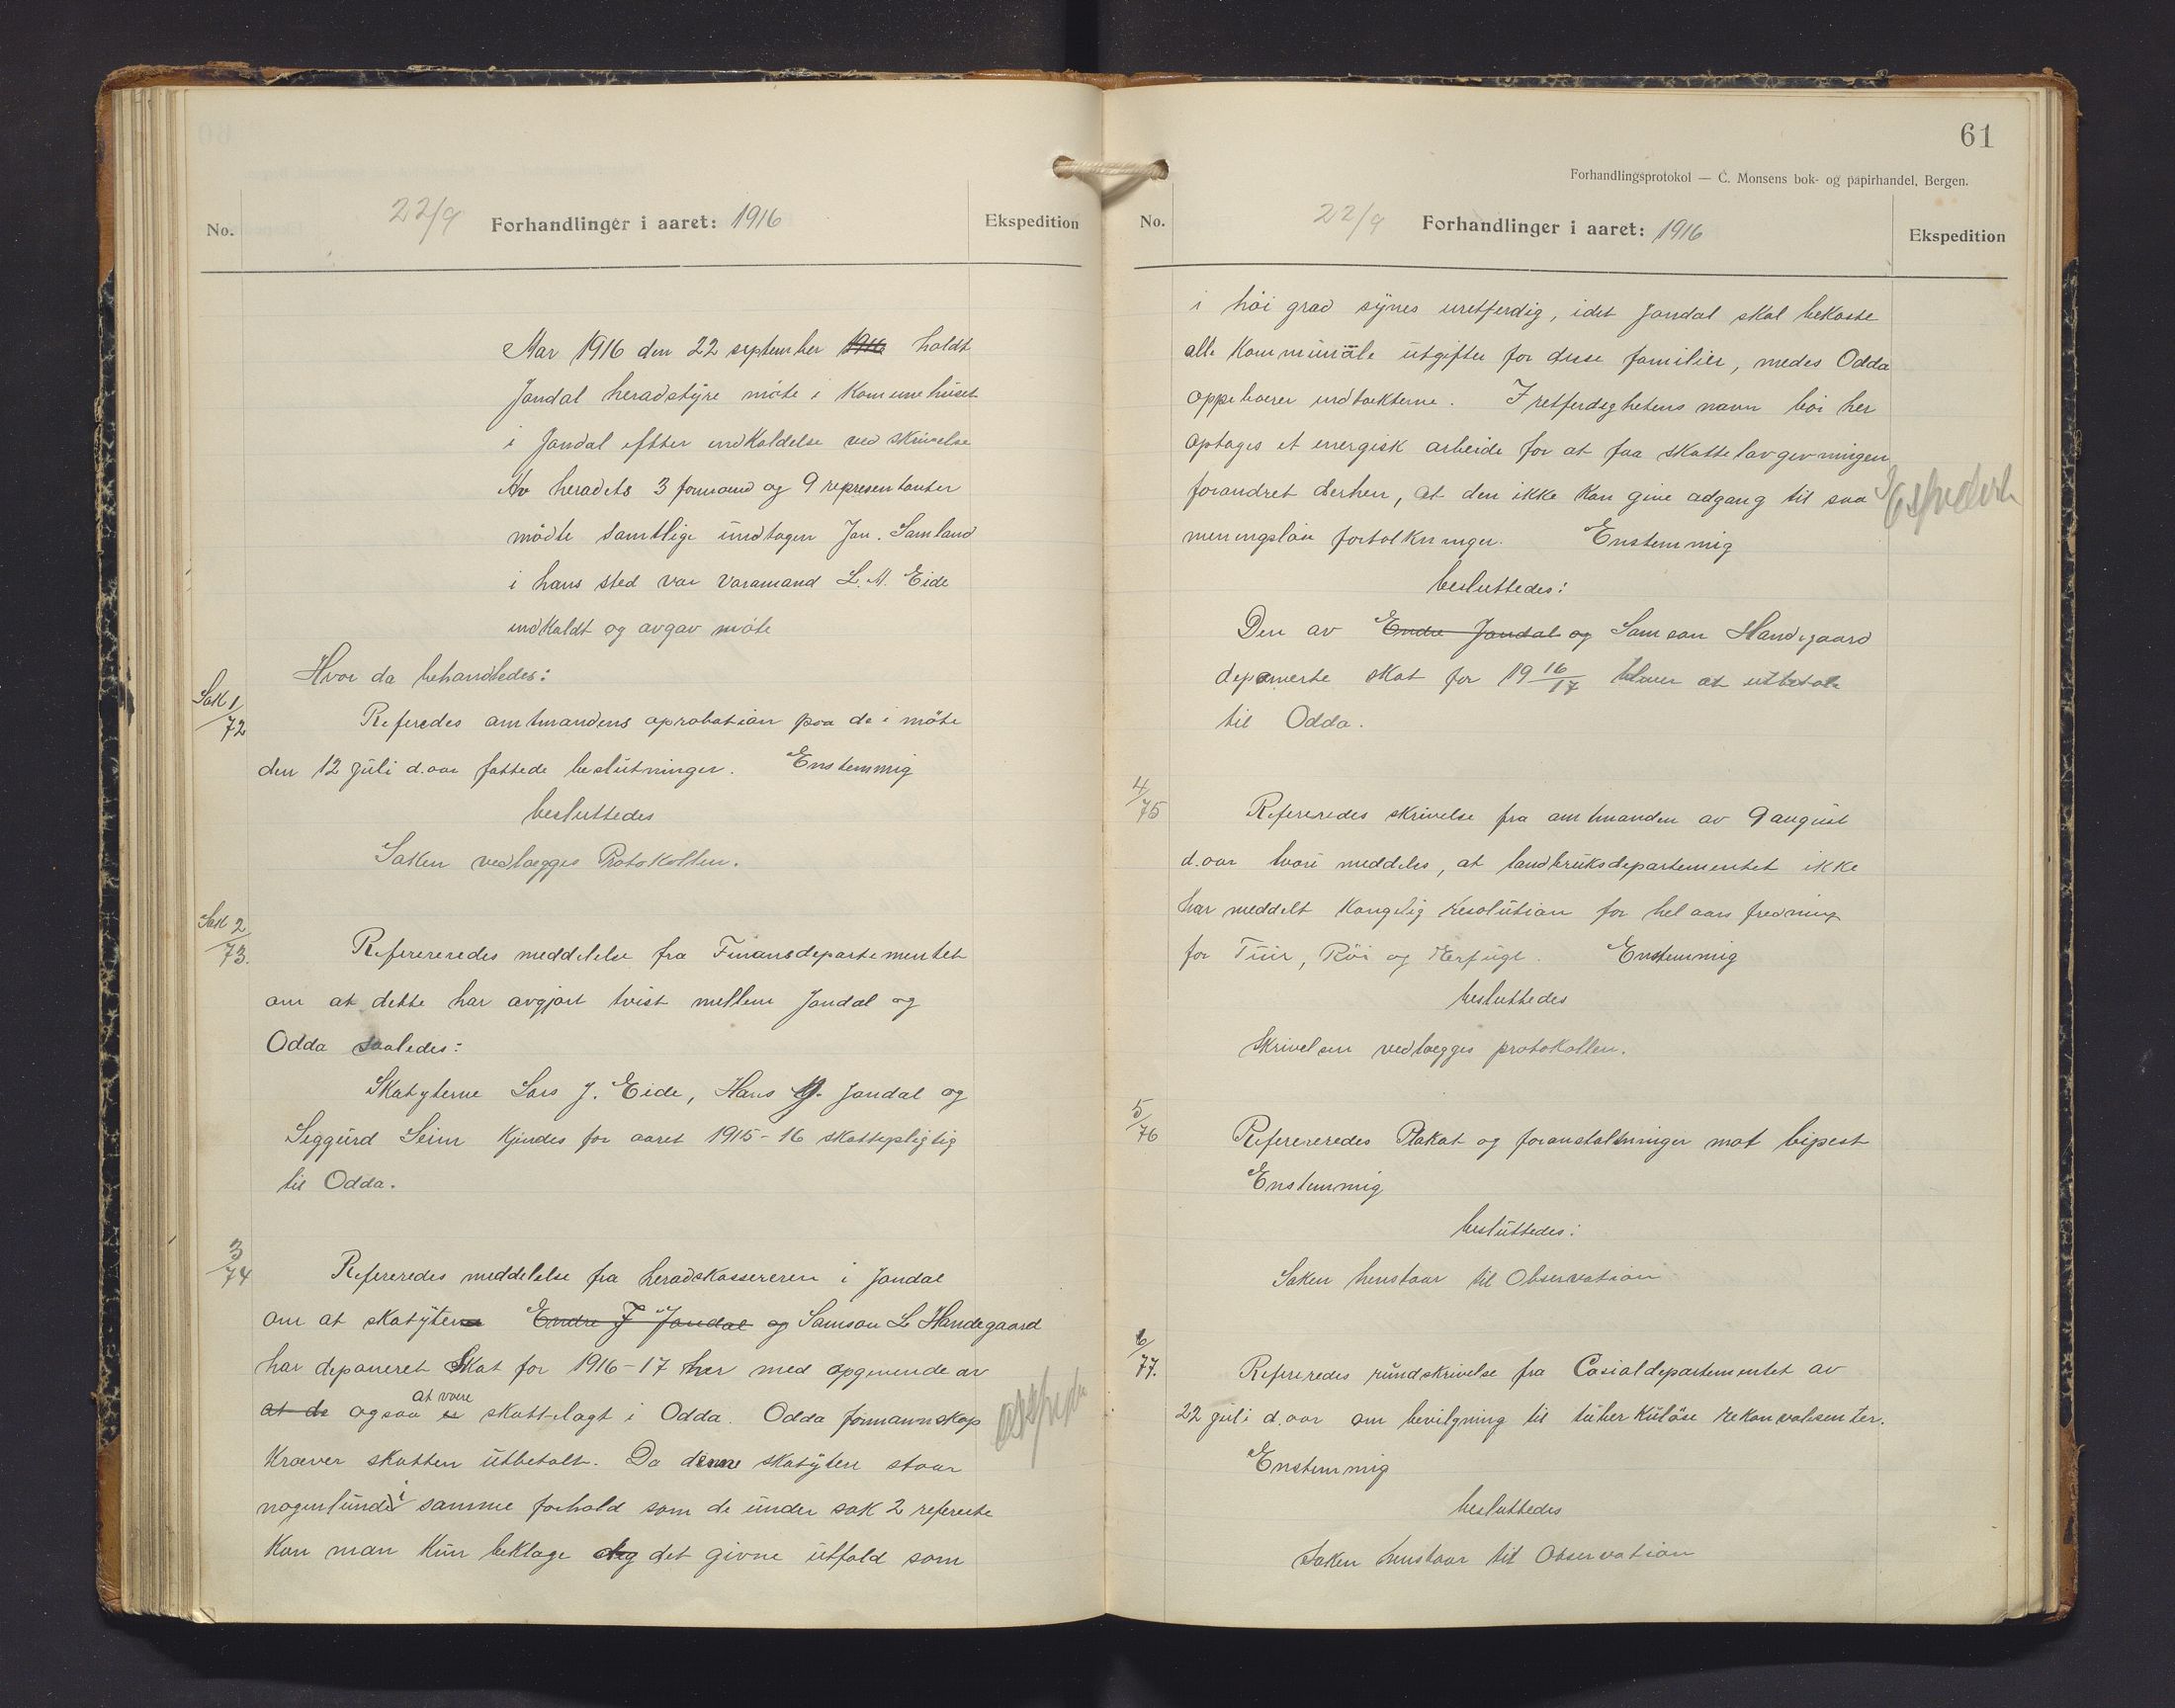 No.
22/9 Forhandlinger i aaret: 1916
Ekspedition
Aar 1916 den 22 september 1916 holdt
Jondal heradstyre möte i Komunehuset
i Jondal eftter indkaldelse ved skrivelse
Av heradets 3 formænd og 9 representanter
mödte samtlige undtagen Jon. Samland
i hans sted var varamand L. M. Eide
indkaldt og avgav möte
Hvor da behandledes:
Sak 1/72
Referedes amtmandens aprobation paa de i möte
den 12 juli d.aar fattede beslutninger. Enstemmig
besluttedes
Saken vedlægges Protokollen.
Sak 2/73.
Refereredes meddelelse fra Finansdepartementet
om at dette har avgjort tvist mellem Jondal og
Odda saaledes:
Skatyterne Lars J. Eide, Hans J. Jondal og
Siggurd Seim kjendes for aaret 1915-16 skattepligtig
til Odda.
3/74
Refereredes meddelelse fra heradskassereren i Jondal
om at skatyter Endre J Jondal og Samson L Handegaard
har deponeret Skat for 1916-17 her med opgivende av
at de ogsaa at være er skattelagt i Odda. Odda formannskap
Kræver skatten utbetalt. Da denne skatyter staar
nogenlunde i samme forhold som de under sak 2 referete
Kan man kun beklage det givne utfald som
61
Forhandlingsprotokol — C. Monsens bok- og papirhandel, Bergen.
No.
22/9 Forhandlinger i aaret: 1916
Ekspedition
i höi grad synes uretferdig, idet Jondal skal bekoste
alle Kommunale utgifter for disse familier, medes Odda
oppebærer indtækterne. I retferdighetens navn bör her
optages et energisk arbeide for at faa skattelovgivningen
forandret derhen, at den ikke kan give adgang til saa
meningslöse fortolkninger. Enstemmig
besluttedes:
Den av Endre Jondal og Samson Handegaard
deponerte skat for 19 16/17 bliver at utbetale
til Odda.
4/75
Refereredes skrivelse fra amtmanden av 9 august
d.aar hvori meddeles, at landbruksdepartementet ikke
har meddelt Kongelig resolution for hel aars fredning
for Tiur, Röi og Ærfugl. Enstemmig
besluttedes
Skrivelsen vedlægges protokollen.
5/76
Refereredes Plakat og foranstaltninger mot bipest
Enstemmig
besluttedes:
Saken henstaar til Observation
6/77.
Refereredes rundskrivelse fra Cosialdepartementet av
22 juli d.aar om bevilgning til tuberkulöse rekonvalesenter.
Enstemmig
besluttedes
Saken henstaar til Observation